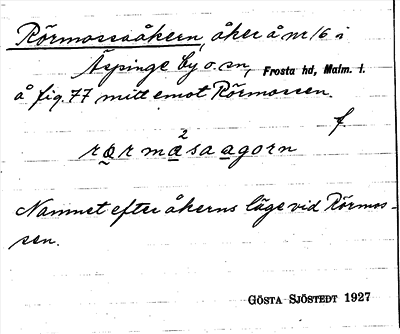 Rörmossaåkern, åker å nr 16 i
Äspinge by o. sn, Frosta hd, Malm. l.
å fig. 77 mitt emot Rörmossen.
f.
2
rør mɑsaagorn
Namnet efter åkerns läge vid Rörmos-
sen.
GÖSTA SJÖSTEDT 1927